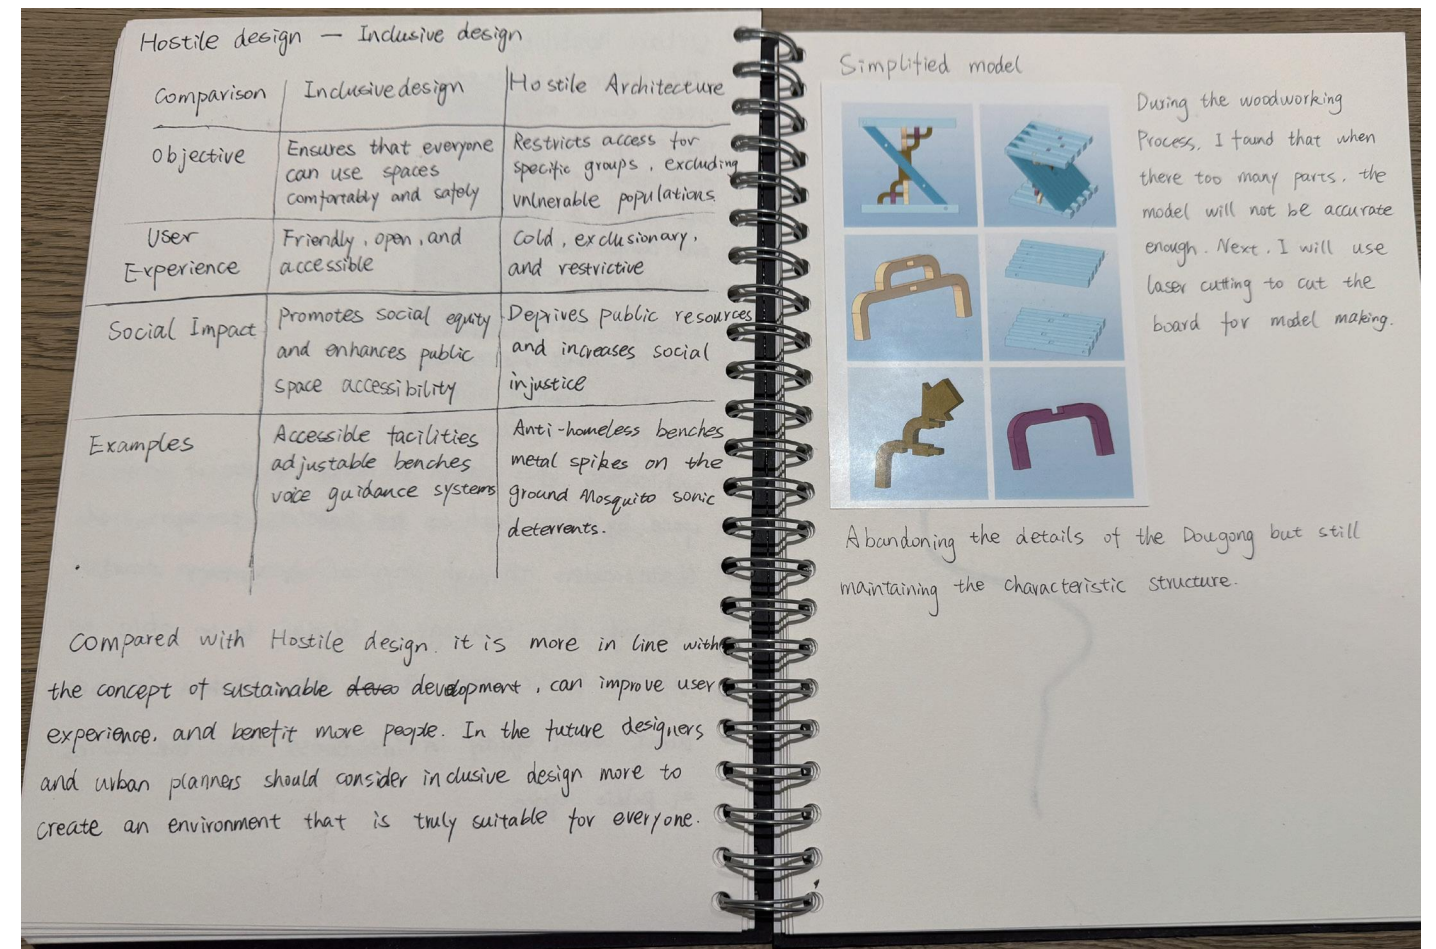 Hostile design — Inclusive design
Comparison
Inclusive design
Hostile Architecture
Objective
Ensures that everyone
can use spaces
comfortably and safely
Restricts access for
specific groups, excluding
vulnerable populations.
User
Experience
Friendly, open, and
accessible
Cold, exclusionary,
and restrictive
Social Impact
Promotes social equity
and enhances public
space accessibility
Deprives public resources
and increases social
injustice
Examples
Accessible facilities
adjustable benches
voice guidance systems
Anti-homeless benches
metal spikes on the
ground Mosquito sonic
deterrents.
Compared with Hostile design. it is more in line with
the concept of sustainable development, can improve user
experience, and benefit more people. In the future designers
and urban planners should consider inclusive design more to
create an environment that is truly suitable for everyone.
Simplified model
During the woodworking
Process, I found that when
there too many parts, the
model will not be accurate
enough. Next, I will use
laser cutting to cut the
board for model making.
Abandoning the details of the Dougong but still
maintaining the characteristic structure.